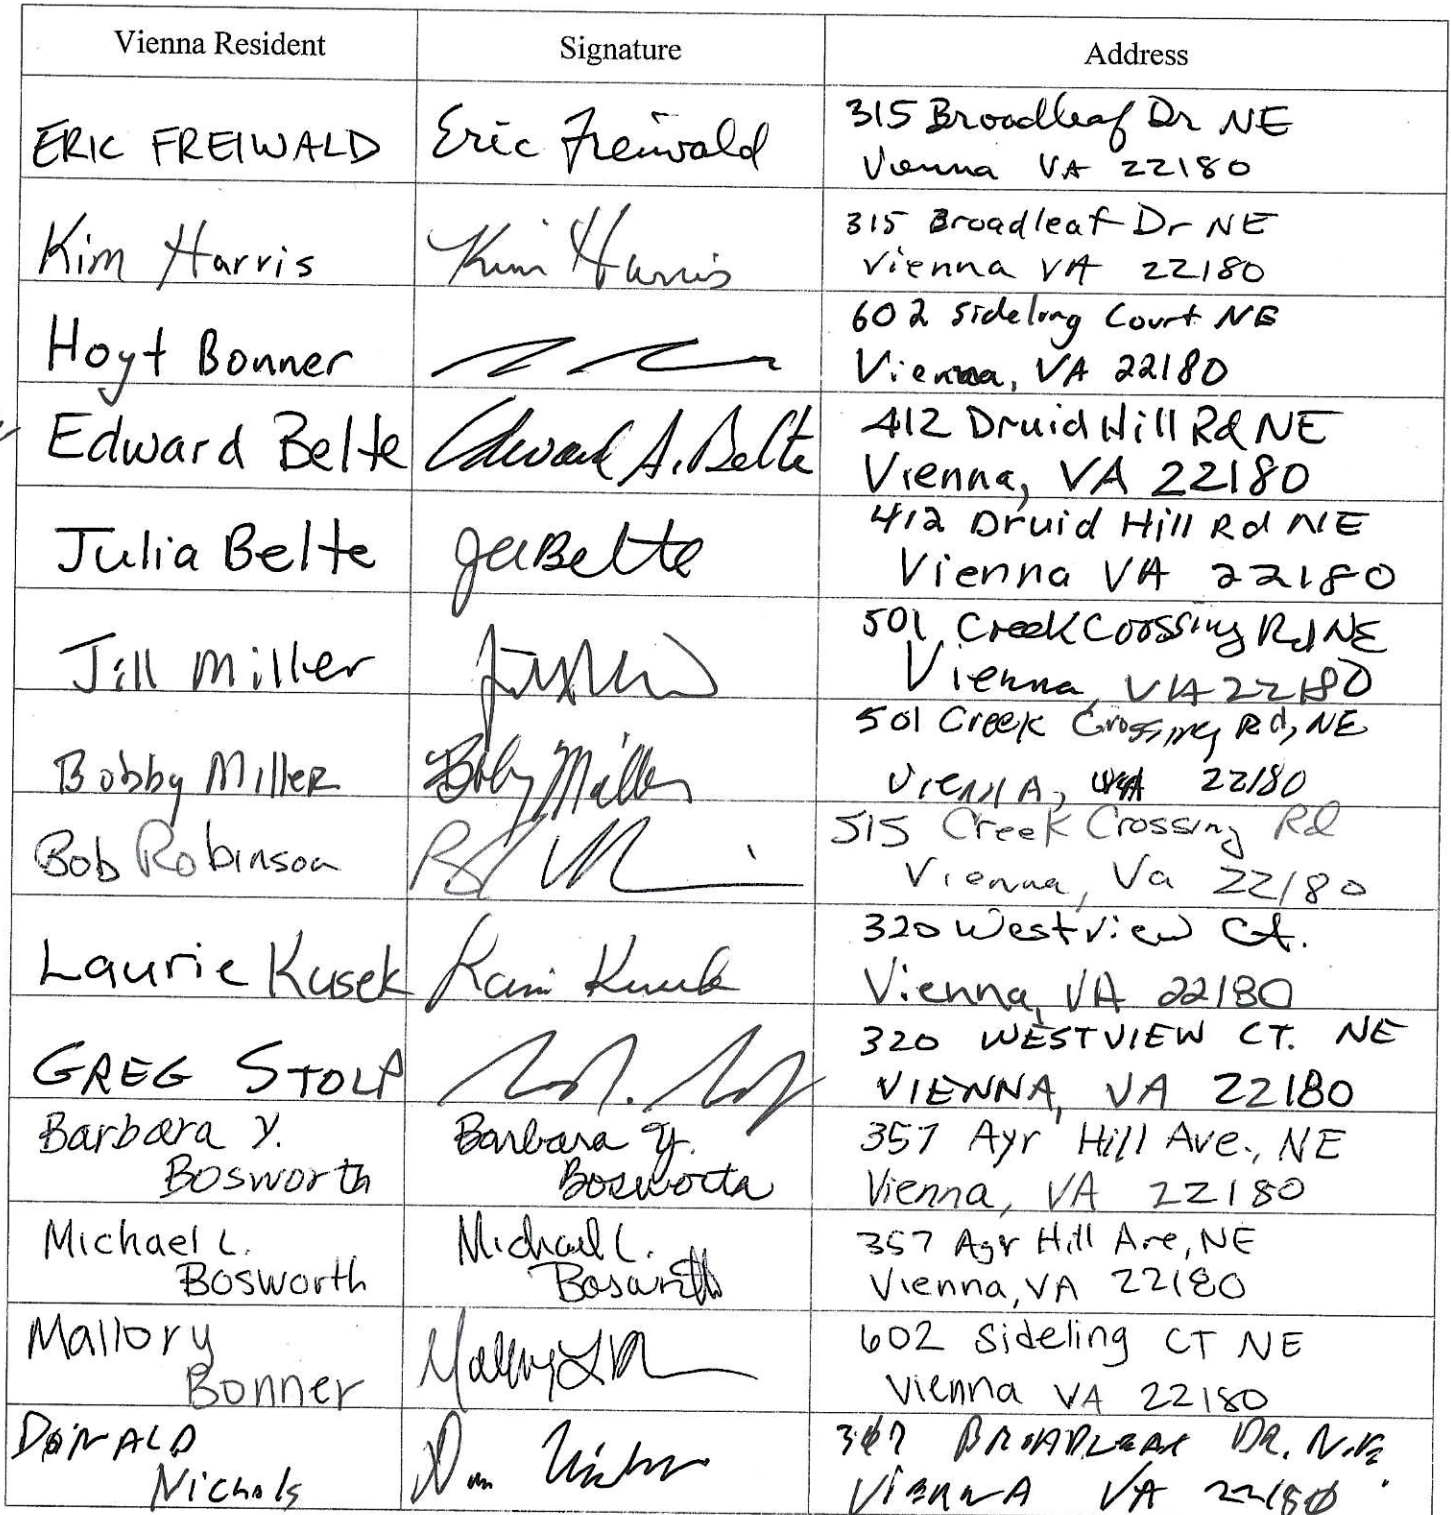 Vienna Resident Signature Address
ERIC FREIWALD Eric Freiwald 315 Broadleaf Dr NE
Vienna VA 22180
Kim Harris Kim Harris 315 Broadleaf Dr NE
Vienna VA 22180
Hoyt Bonner 602 Sideling Court NE
Vienna, VA 22180
Edward Belte Edward A. Belte 412 Druid Hill Rd NE
Vienna, VA 22180
Julia Belte JuBelte 412 Druid Hill Rd NE
Vienna VA 22180
Jill Miller 501 Creek Coossing Rd NE
Vienna, VA 22180
Bobby Miller Bobby Miller 501 Creek Crossing Rd, NE
Vienna, VA 22180
Bob Robinson 515 Creek Crossing Rd
Vienna, Va 22180
Laurie Kusek 320 Westview Ct.
Vienna, VA 22180
GREG STOLP 320 WESTVIEW CT. NE
VIENNA, VA 22180
Barbara Y. Barbara Y. 357 Ayr Hill Ave., NE
Bosworth Bosworth Vienna, VA 22180
Michael L. Michael L. 357 Ayr Hill Ave, NE
Bosworth Bosworth Vienna, VA 22180
Mallory 602 Sideling CT NE
Bonner Vienna VA 22180
DONALD Don Nichols 307 BROADLEAF DR. N.E.
Nichols VIENNA VA 22180